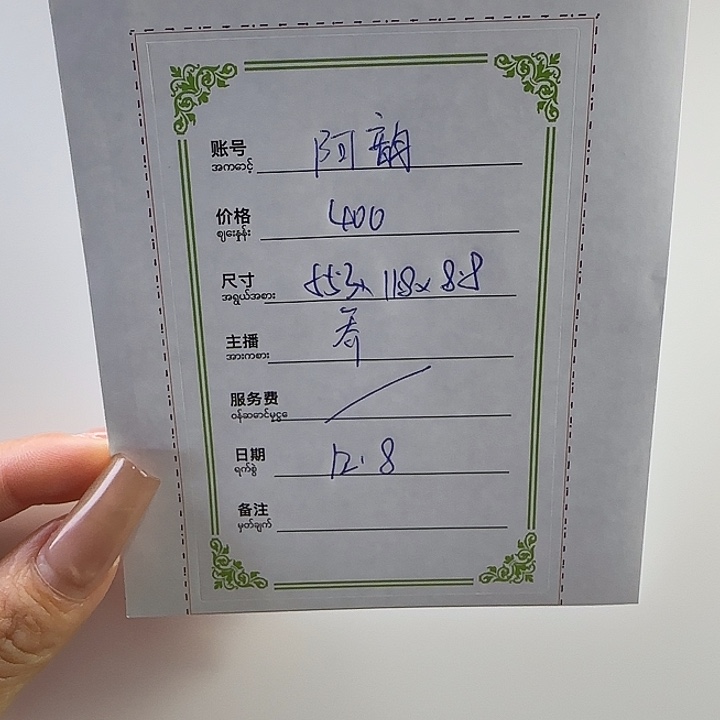 账号 阿韵
အကောင့်
价格 400
ဈေးနှုန်း
尺寸 55.3x 11.8x 8.8
အရွယ်အစား
主播
အားကစား
服务费
ဝန်ဆောင်မှုငွေ
日期 12.8
ရက်စွဲ
备注
မှတ်ချက်